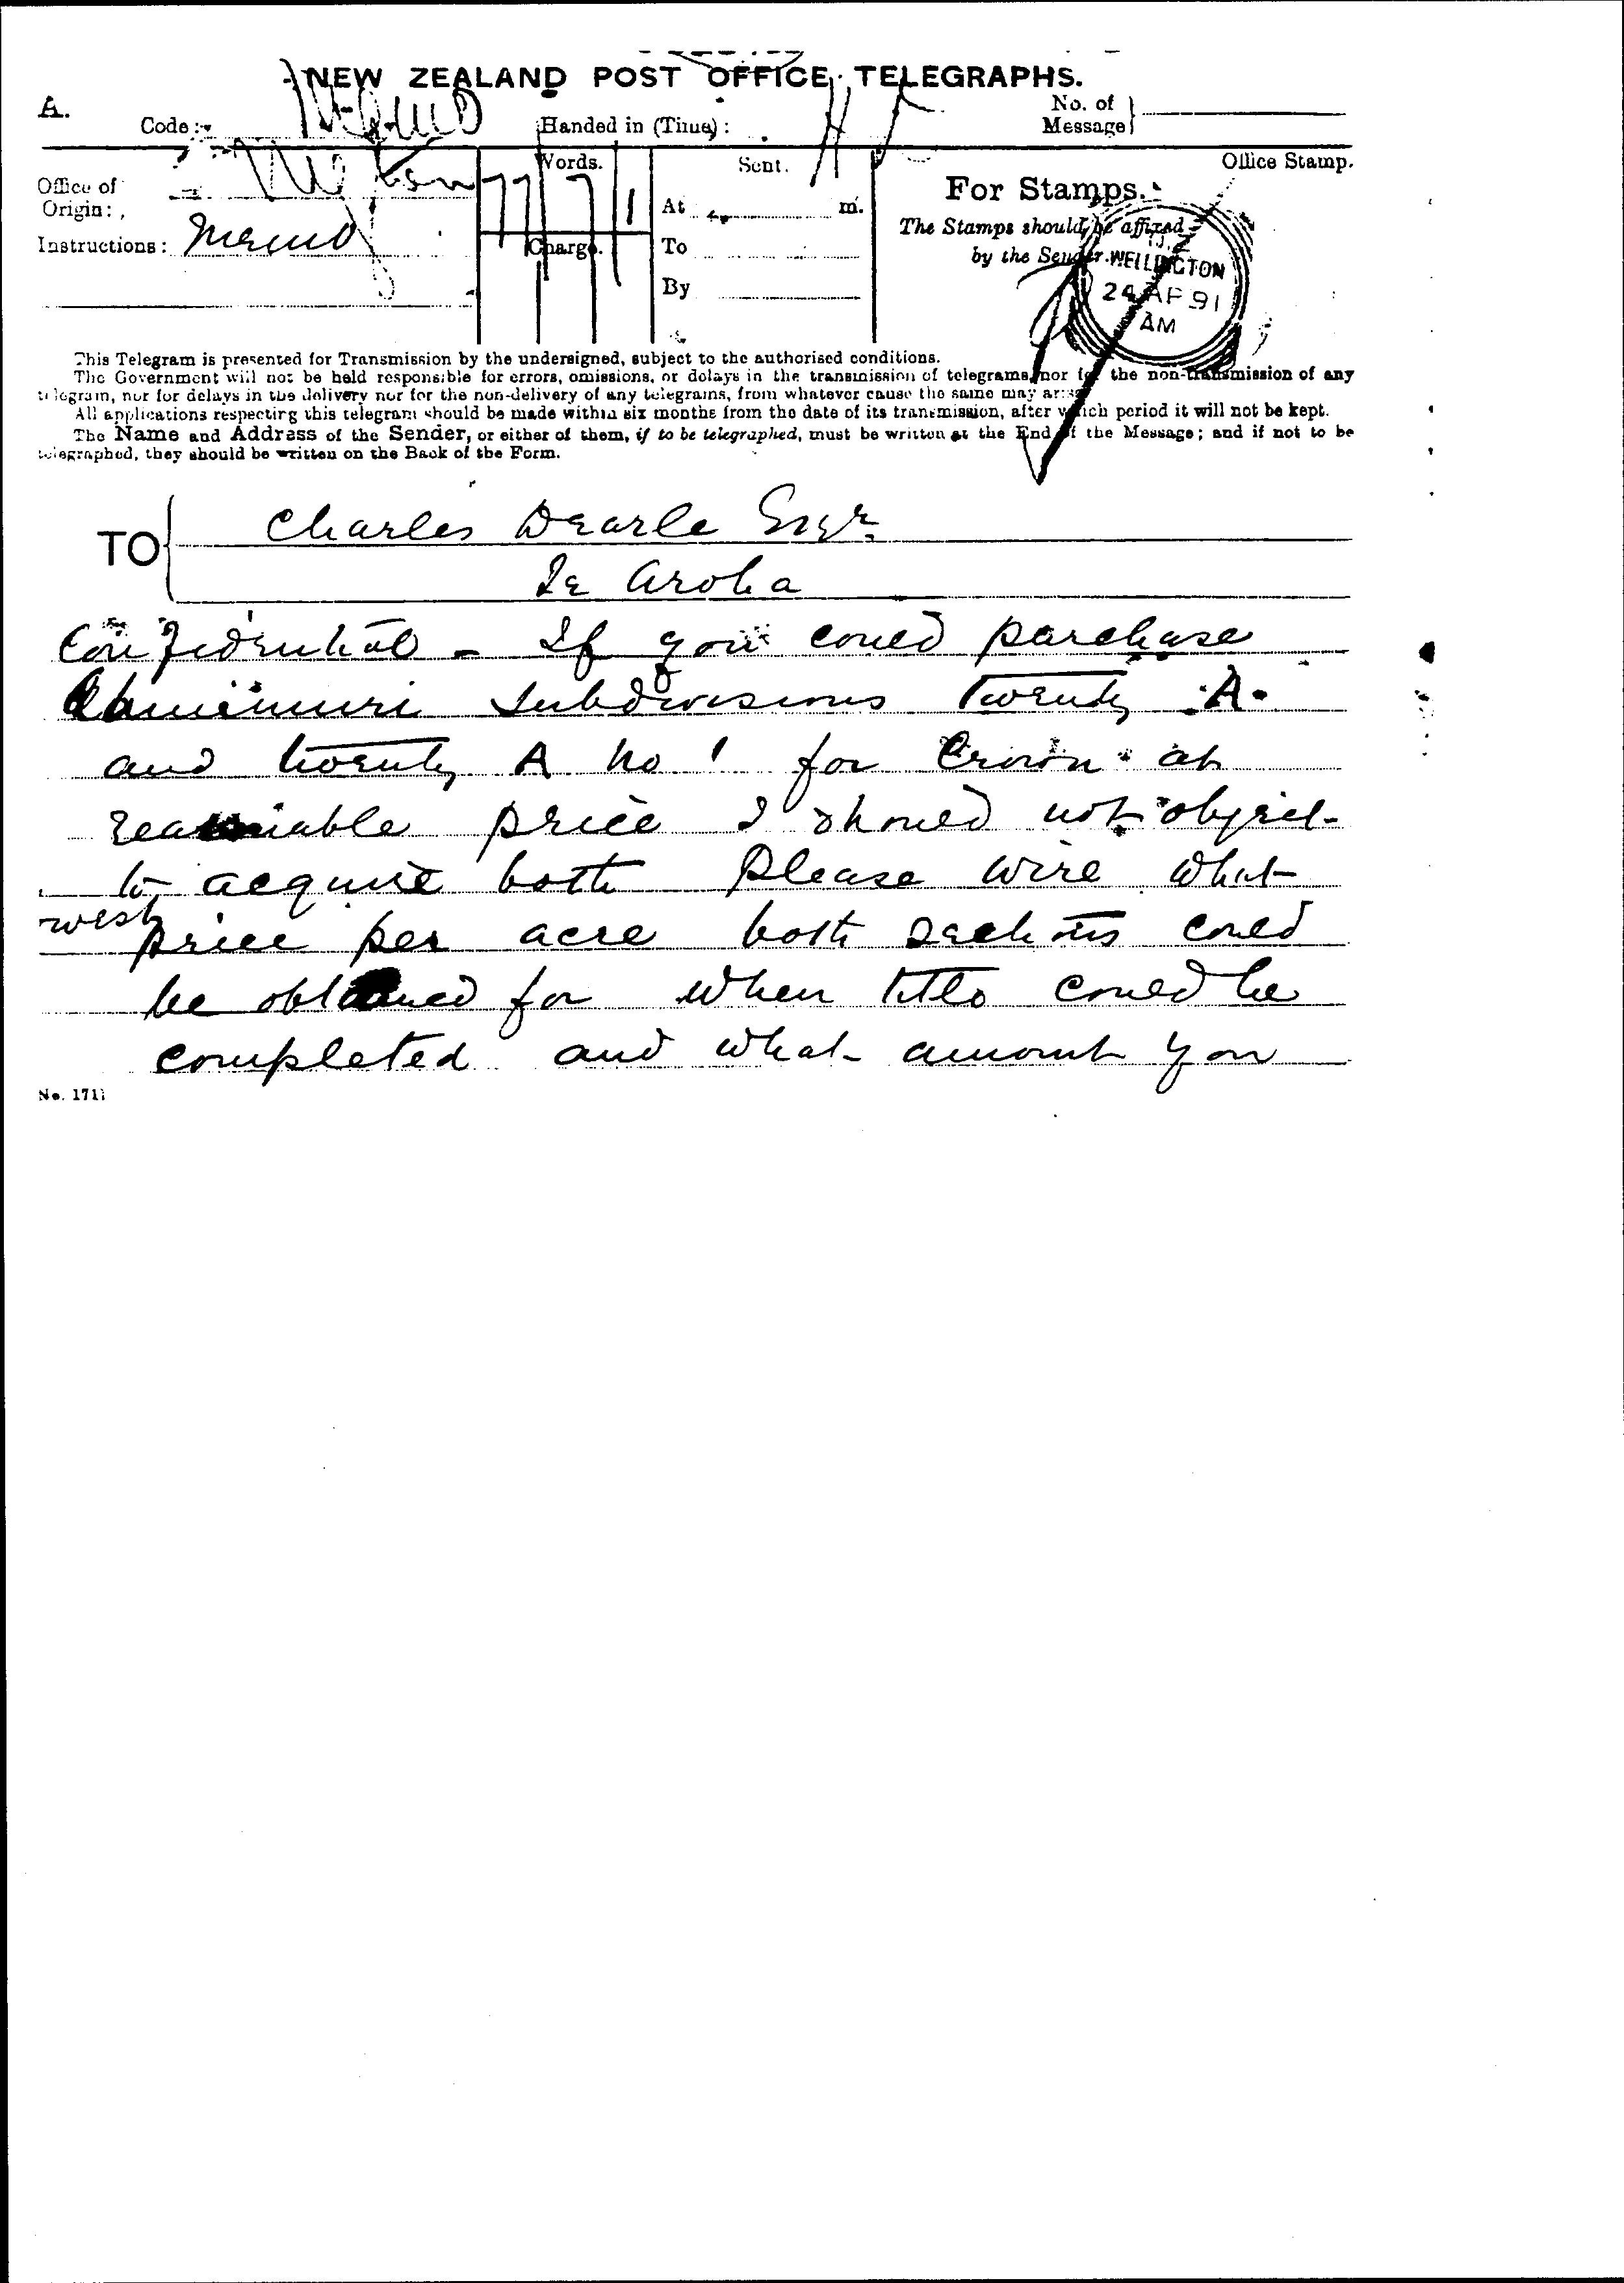 NEW ZEALAND POST OFFICE TELEGRAPHS.
A.
Code:
Handed in (Time):
No. of Message
Office of Origin:
Words.
Sent.
Office Stamp.
At m.
For Stamps.
The Stamps should be affixed
by the Sender.
WELLINGTON
24 AP 91
AM
Instructions: Memo
Charge.
To
By
This Telegram is presented for Transmission by the undersigned, subject to the authorised conditions.
The Government will not be held responsible for errors, omissions, or delays in the transmission of telegrams, nor for the non-transmission of any
telegram, nor for delays in the delivery nor for the non-delivery of any telegrams, from whatever cause the same may arise
All applications respecting this telegram should be made within six months from the date of its transmission, after which period it will not be kept.
The Name and Address of the Sender, or either of them, if to be telegraphed, must be written at the End of the Message; and if not to be
telegraphed, they should be written on the Back of the Form.
TO Charles Dearle Esqr
Te Aroha
Confidential - If you could purchase
Ohinemuri Subdivisions Twenty A.
and twenty A No 1 for Crown at
reasonable price I should not object
to acquire both Please wire what
west
price per acre both sections could
be obtained for when title could be
completed and what amount you
No. 171